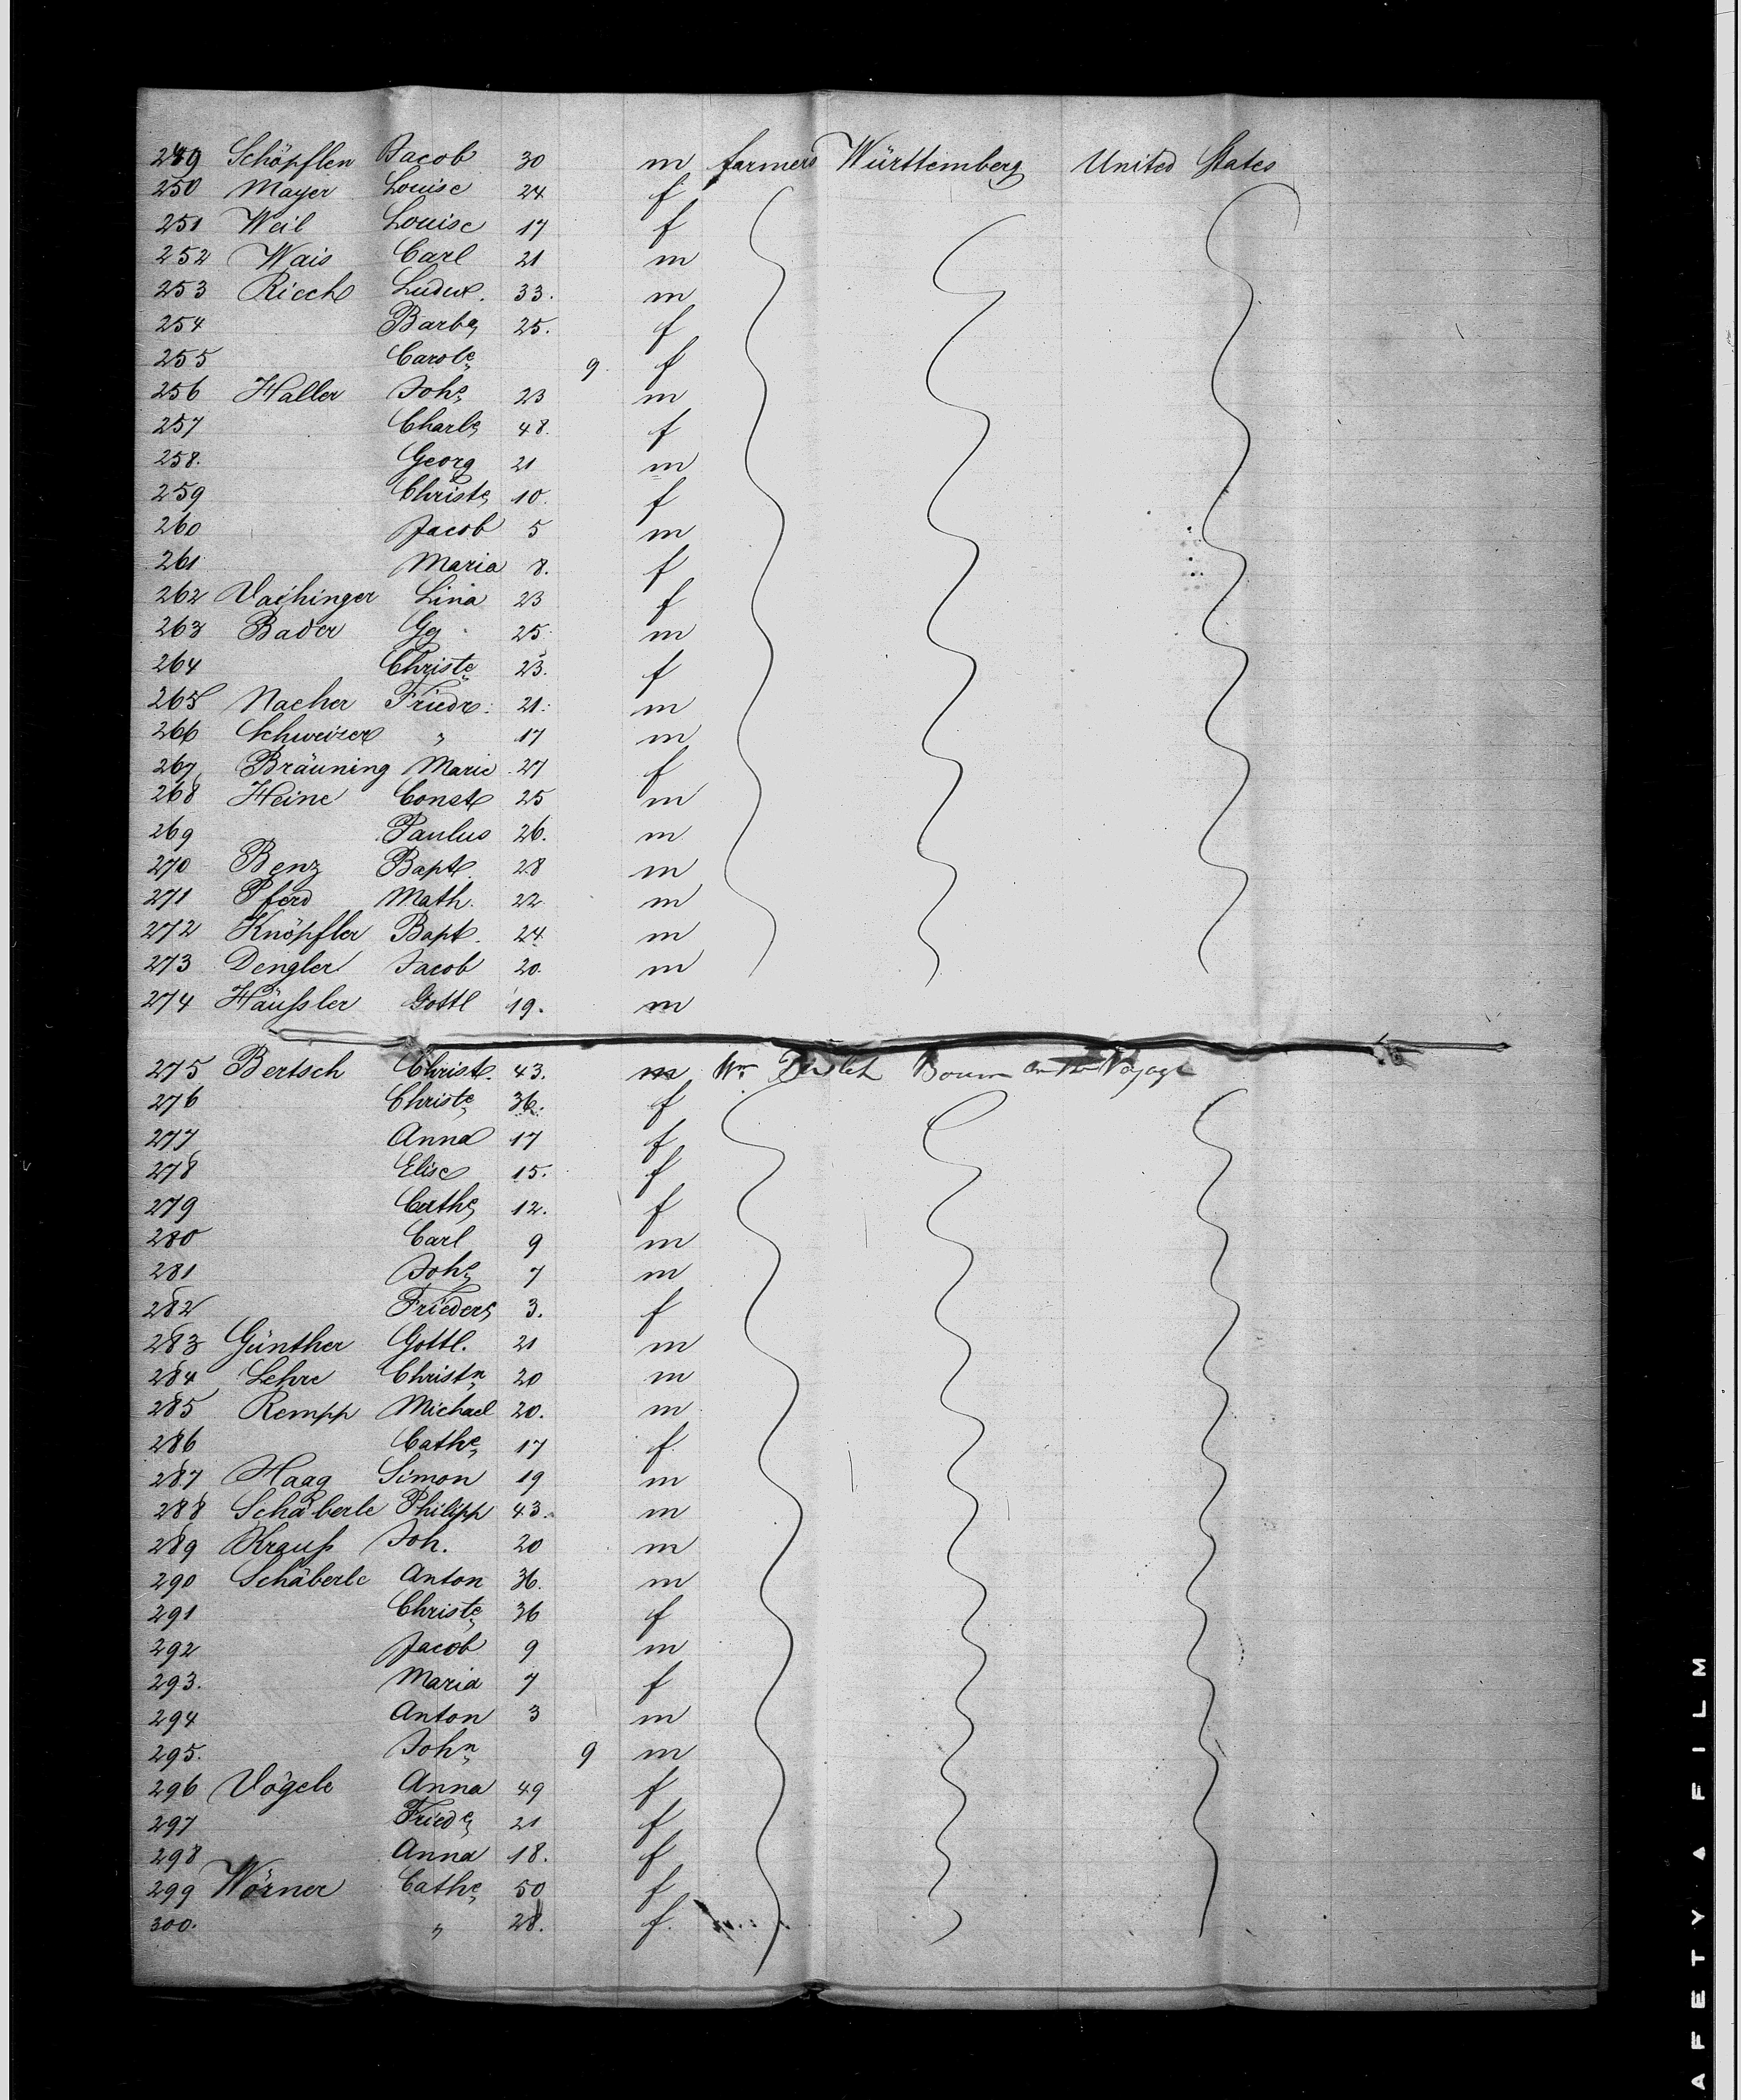 249 Schöpflen Jacob 30 m farmers Württemberg United States
250 Mayer Louise 24 f
251 Weil Louise 17 f
252 Wais Carl 21 m
253 Riech Ludw. 33. m
254 Barba 25. f
255 Carole 9. f
256 Haller Johs 23 m
257 Charle 48. f
258. Georg 21 m
259 Christe 10. f
260 Jacob 5 m
261 Maria 8. f
262 Vaihinger Lina 23 f
263 Bader Gg 25 m
264 Christe 23. f
265 Nacher Friedr. 21. m
266 Schweizer " 17 m
267 Bräuning Marie 27 f
268 Heine Const 25 m
269 Paulus 26. m
270 Benz Bapt. 28 m
271 Pferd Math. 22 m
272 Knöpfler Bapt. 24 m
273 Dengler Jacob 20. m
274 Häußler Gottl 19. m
275 Bertsch Christ. 43. m on the Voyage
276 Christe 36. f
277 Anna 17 f
278 Elise 15. f
279 Cathe 12. f
280 Carl 9 m
281 Johs 7 m
282 Frieder 3. f
283 Günther Gottl. 21 m
284 Lehre Christn 20 m
285 Rempp Michael 20. m
286 Cathe 17 f.
287 Haag Simon 19 m
288 Schäberle Philipp 43. m
289 Krauß Joh. 20 m
290 Schäberle Anton 36. m
291 Christe 36 f
292 Jacob 9 m
293. Maria 7 f
294 Anton 3 m
295. John 9 m
296 Vögele Anna 49 f
297 Friede 21 f
298 Anna 18. f
299 Wörner Cathe 50 f
300. " 28. f.
AFETY A FILM